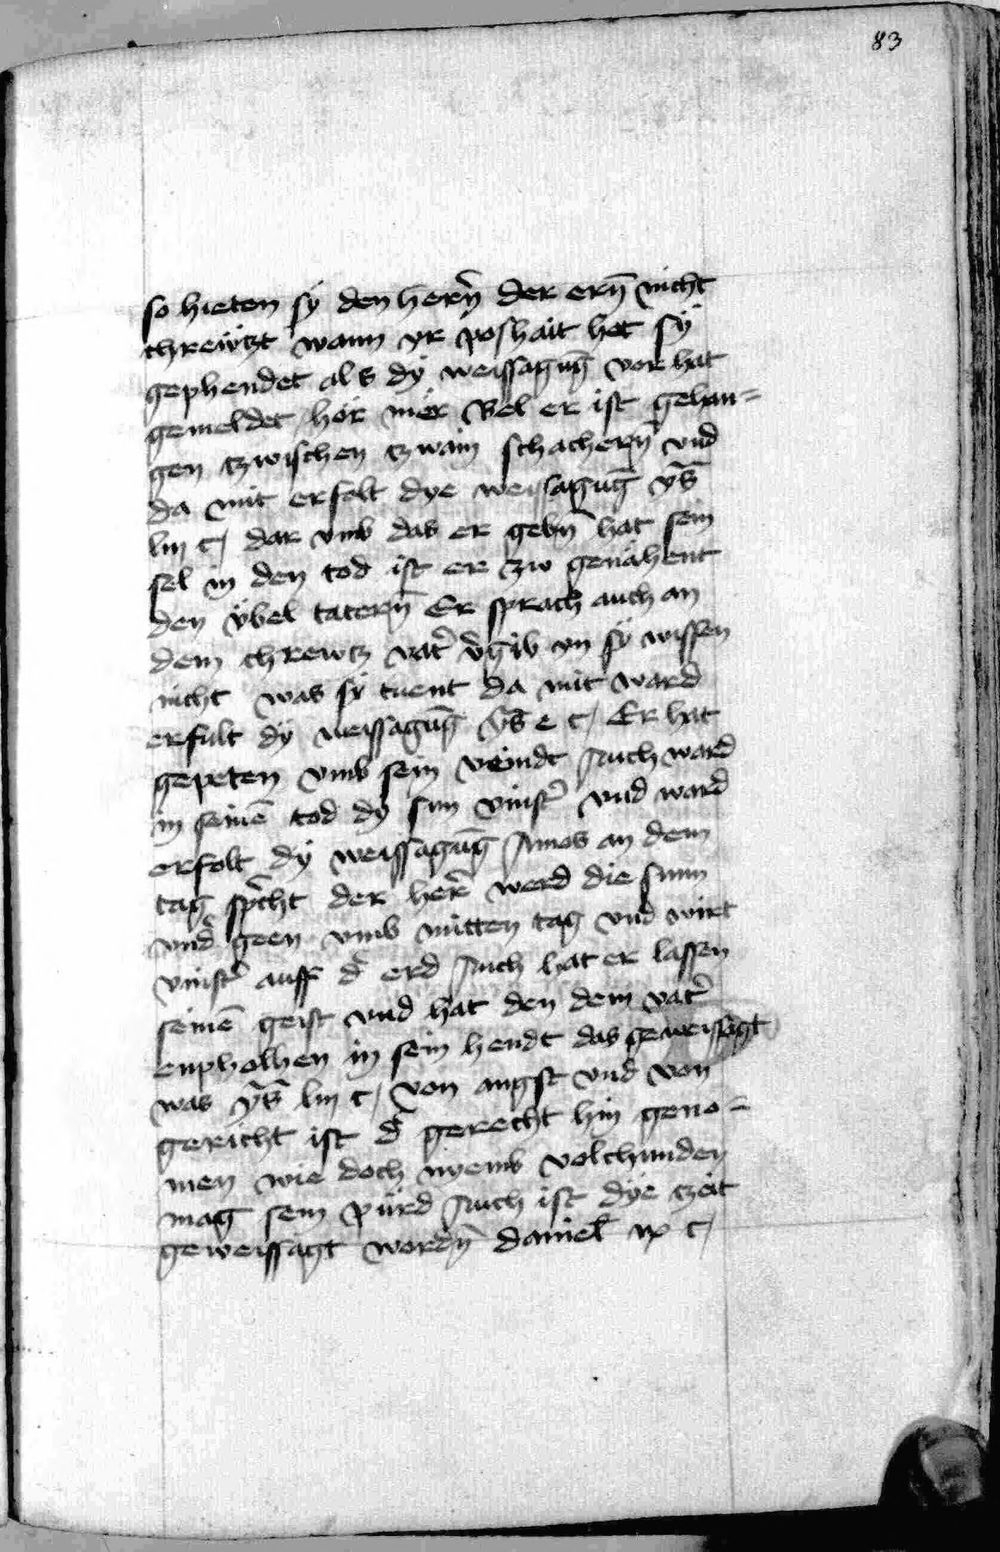 83
so hieten sÿ den herñ der erñ nicht
chrewtzt wann yr poshait het sÿ
gephendet als dÿ weissagūg vor hat
gemeldet hör mer Bel er ist gehan=
gen tzwischen tzwain schacherñ vnd
da mit erfolt dye weissagūg ys̄
liij c, dar vmb das er gebñ hat sein
sel in den tod ist er zw genähent
den ÿbel taterñ Er sprach auch an
dem chrewtz vat̉ v̉gib yn sÿ wissen
nicht was sÿ tuent da mit ward
erfult dÿ weissagūg ys̄ e c, Er hat
gepeten vmb sein veindt Auch ward
in seinē tod dÿ sun vinst̉ vnd ward
erfolt dÿ weissagūg Amos an dem
tag sp̄cht der her̉ werd die sunn
vnd̉ geen vmb mitten tag vnd wirt
vinst̉ auff d̉ erd Auch hat er lassen
seinē geist vnd hat den dem vat̉
enpholhen in sein hendt das geweissagt
was ys̄ liij c, von angst vnd von
gericht ist d̉ gerecht hin geno=
men wie doch nyemb volchunden
mag sein pürd Auch ist dye tzeit
geweissagt wordñ daniel ix c,